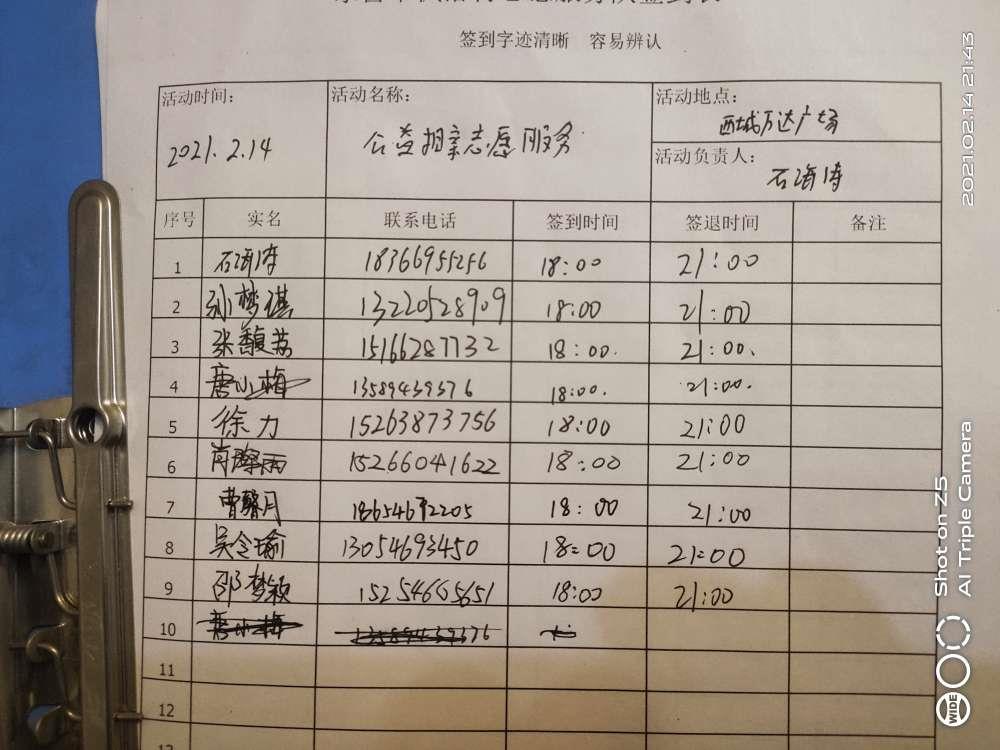 签到字迹清晰 容易辨认
活动时间: 2021.2.14
活动名称: 公益相亲志愿服务
活动地点: 西城万达广场
活动负责人: 石海涛
序号 实名 联系电话 签到时间 签退时间 备注
1 石海涛 18366955256 18:00 21:00
2 孙梦祺 13220528909 18:00 21:00
3 张馥荔 15166287732 18:00. 21:00.
4 唐小梅 13589439376 18:00. 21:00.
5 徐力 15263873756 18:00 21:00
6 15266041622 18:00 21:00
7 曹馨月 18654672205 18:00 21:00
8 吴令瑜 13054693450 18:00 21:00
9 邵梦颖 15254665651 18:00 21:00
10
11
12
2021.02.14 21:43
Shot on Z5
AI Triple Camera
WIDE